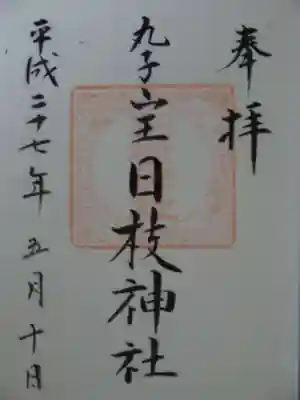 奉拝
丸子山王日枝神社
平成二十七年五月十日